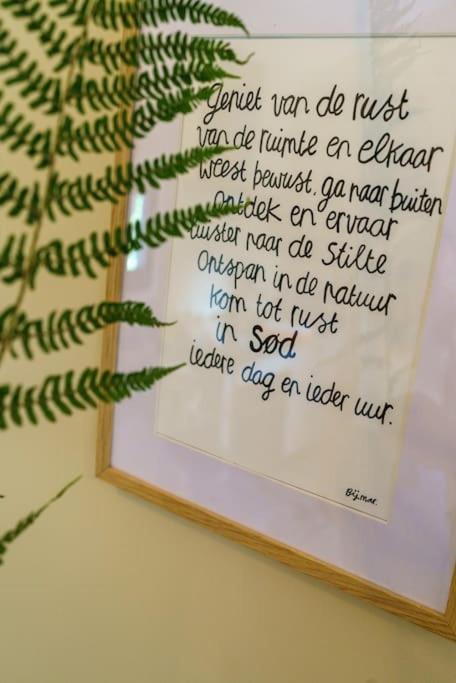 Geniet van de rust
van de ruimte en elkaar
weest bewust. ga naar buiten
ontdek en ervaar
luister naar de stilte
Ontspan in de natuur
kom tot rust
in Sød
iedere dag en ieder uur.
Bij.mar.